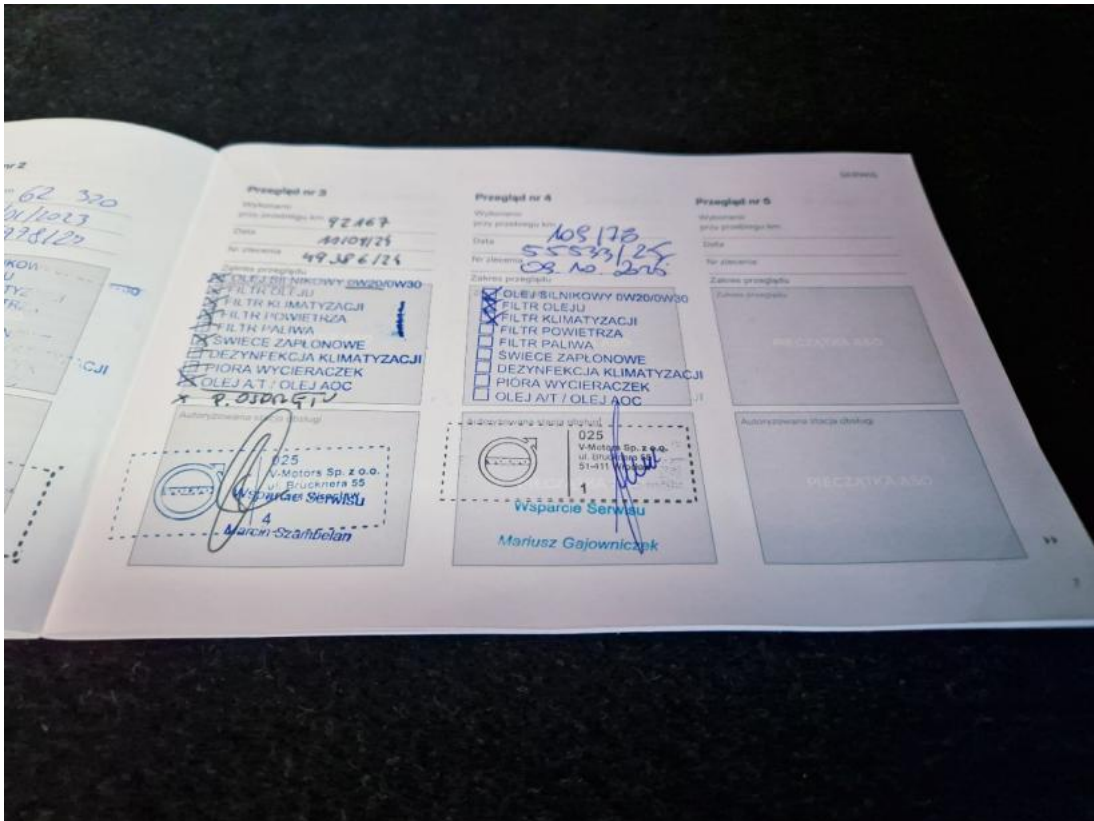 nr 2
62 320
/01/2023
978/23
SERWIS
Przegląd nr 3
Wykonano
przy przebiegu km 92167
Data
Nr zlecenia 49386/24
Zakres przeglądu
OLEJ SILNIKOWY 0W20/0W30
FILTR OLEJU
FILTR KLIMATYZACJI
FILTR POWIETRZA
FILTR PALIWA
ŚWIECE ZAPŁONOWE
DEZYNFEKCJA KLIMATYZACJI
PIÓRA WYCIERACZEK
OLEJ A/T / OLEJ AOC
Autoryzowana stacja obsługi
VOLVO
025
V-Motors Sp. z o.o.
ul. Brucknera 55
Wsparcie Serwisu
4
Marcin Szambelan
Przegląd nr 4
Wykonano
przy przebiegu km 109178
Data
Nr zlecenia 55533/25
09.10.2025
Zakres przeglądu
OLEJ SILNIKOWY 0W20/0W30
FILTR OLEJU
FILTR KLIMATYZACJI
FILTR POWIETRZA
FILTR PALIWA
ŚWIECE ZAPŁONOWE
DEZYNFEKCJA KLIMATYZACJI
PIÓRA WYCIERACZEK
OLEJ A/T / OLEJ AOC
Autoryzowana stacja obsługi
025
V-Motors Sp. z o.o.
ul. Brucknera 55
51-411 Wrocław
1
Wsparcie Serwisu
Mariusz Gajowniczek
Przegląd nr 5
Wykonano
przy przebiegu km
Data
Nr zlecenia
Zakres przeglądu
PIECZĄTKA ASO
Autoryzowana stacja obsługi
PIECZĄTKA ASO
3